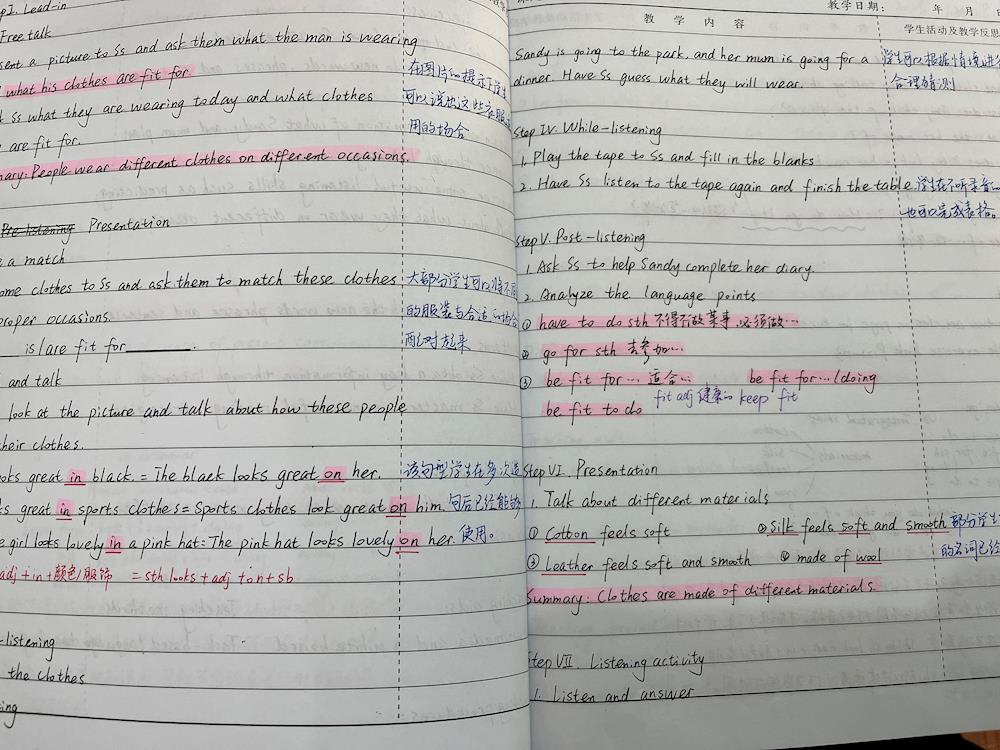 Step I. Lead-in
Free talk
sent a picture to Ss and ask them what the man is wearing
what his clothes are fit for.
Ss what they are wearing today and what clothes
are fit for.
mary: People wear different clothes on different occasions.
在图片的提示下学生
可以说出这些衣服适
用的场合
Pre-listening Presentation
e a match
ome clothes to Ss and ask them to match these clothes
roper occasions.
is/are fit for
大部分学生可以将不同
的服装与合适的场合
配对起来
and talk
look at the picture and talk about how these people
their clothes.
oks great in black. = The black looks great on her.
ks great in sports clothes = Sports clothes look great on him.
e girl looks lovely in a pink hat = The pink hat looks lovely on her.
adj + in + 颜色/服饰 = sth looks + adj + on + sb
该句型学生在多次造
句后已经能够
使用。
-listening
the clothes
ing
教学日期: 年 月 日
教 学 内 容
学生活动及教学反思
Sandy is going to the park, and her mum is going for a
dinner. Have Ss guess what they will wear.
学生可以根据情境进行
合理猜测
Step IV. While-listening
1. Play the tape to Ss and fill in the blanks
2. Have Ss listen to the tape again and finish the table.
学生在不听录音
也可以完成表格。
Step V. Post-listening
1. Ask Ss to help Sandy complete her diary.
2. Analyze the language points
① have to do sth 不得不做某事 必须做…
② go for sth 去参加…
③ be fit for… 适合… be fit for…/doing
be fit to do fit adj 健康的 keep fit
Step VI. Presentation
1. Talk about different materials
① Cotton feels soft ② Silk feels soft and smooth
③ Leather feels soft and smooth ④ made of wool
部分学生
的名词已经
Summary: Clothes are made of different materials.
Step VII. Listening activity
1. Listen and answer